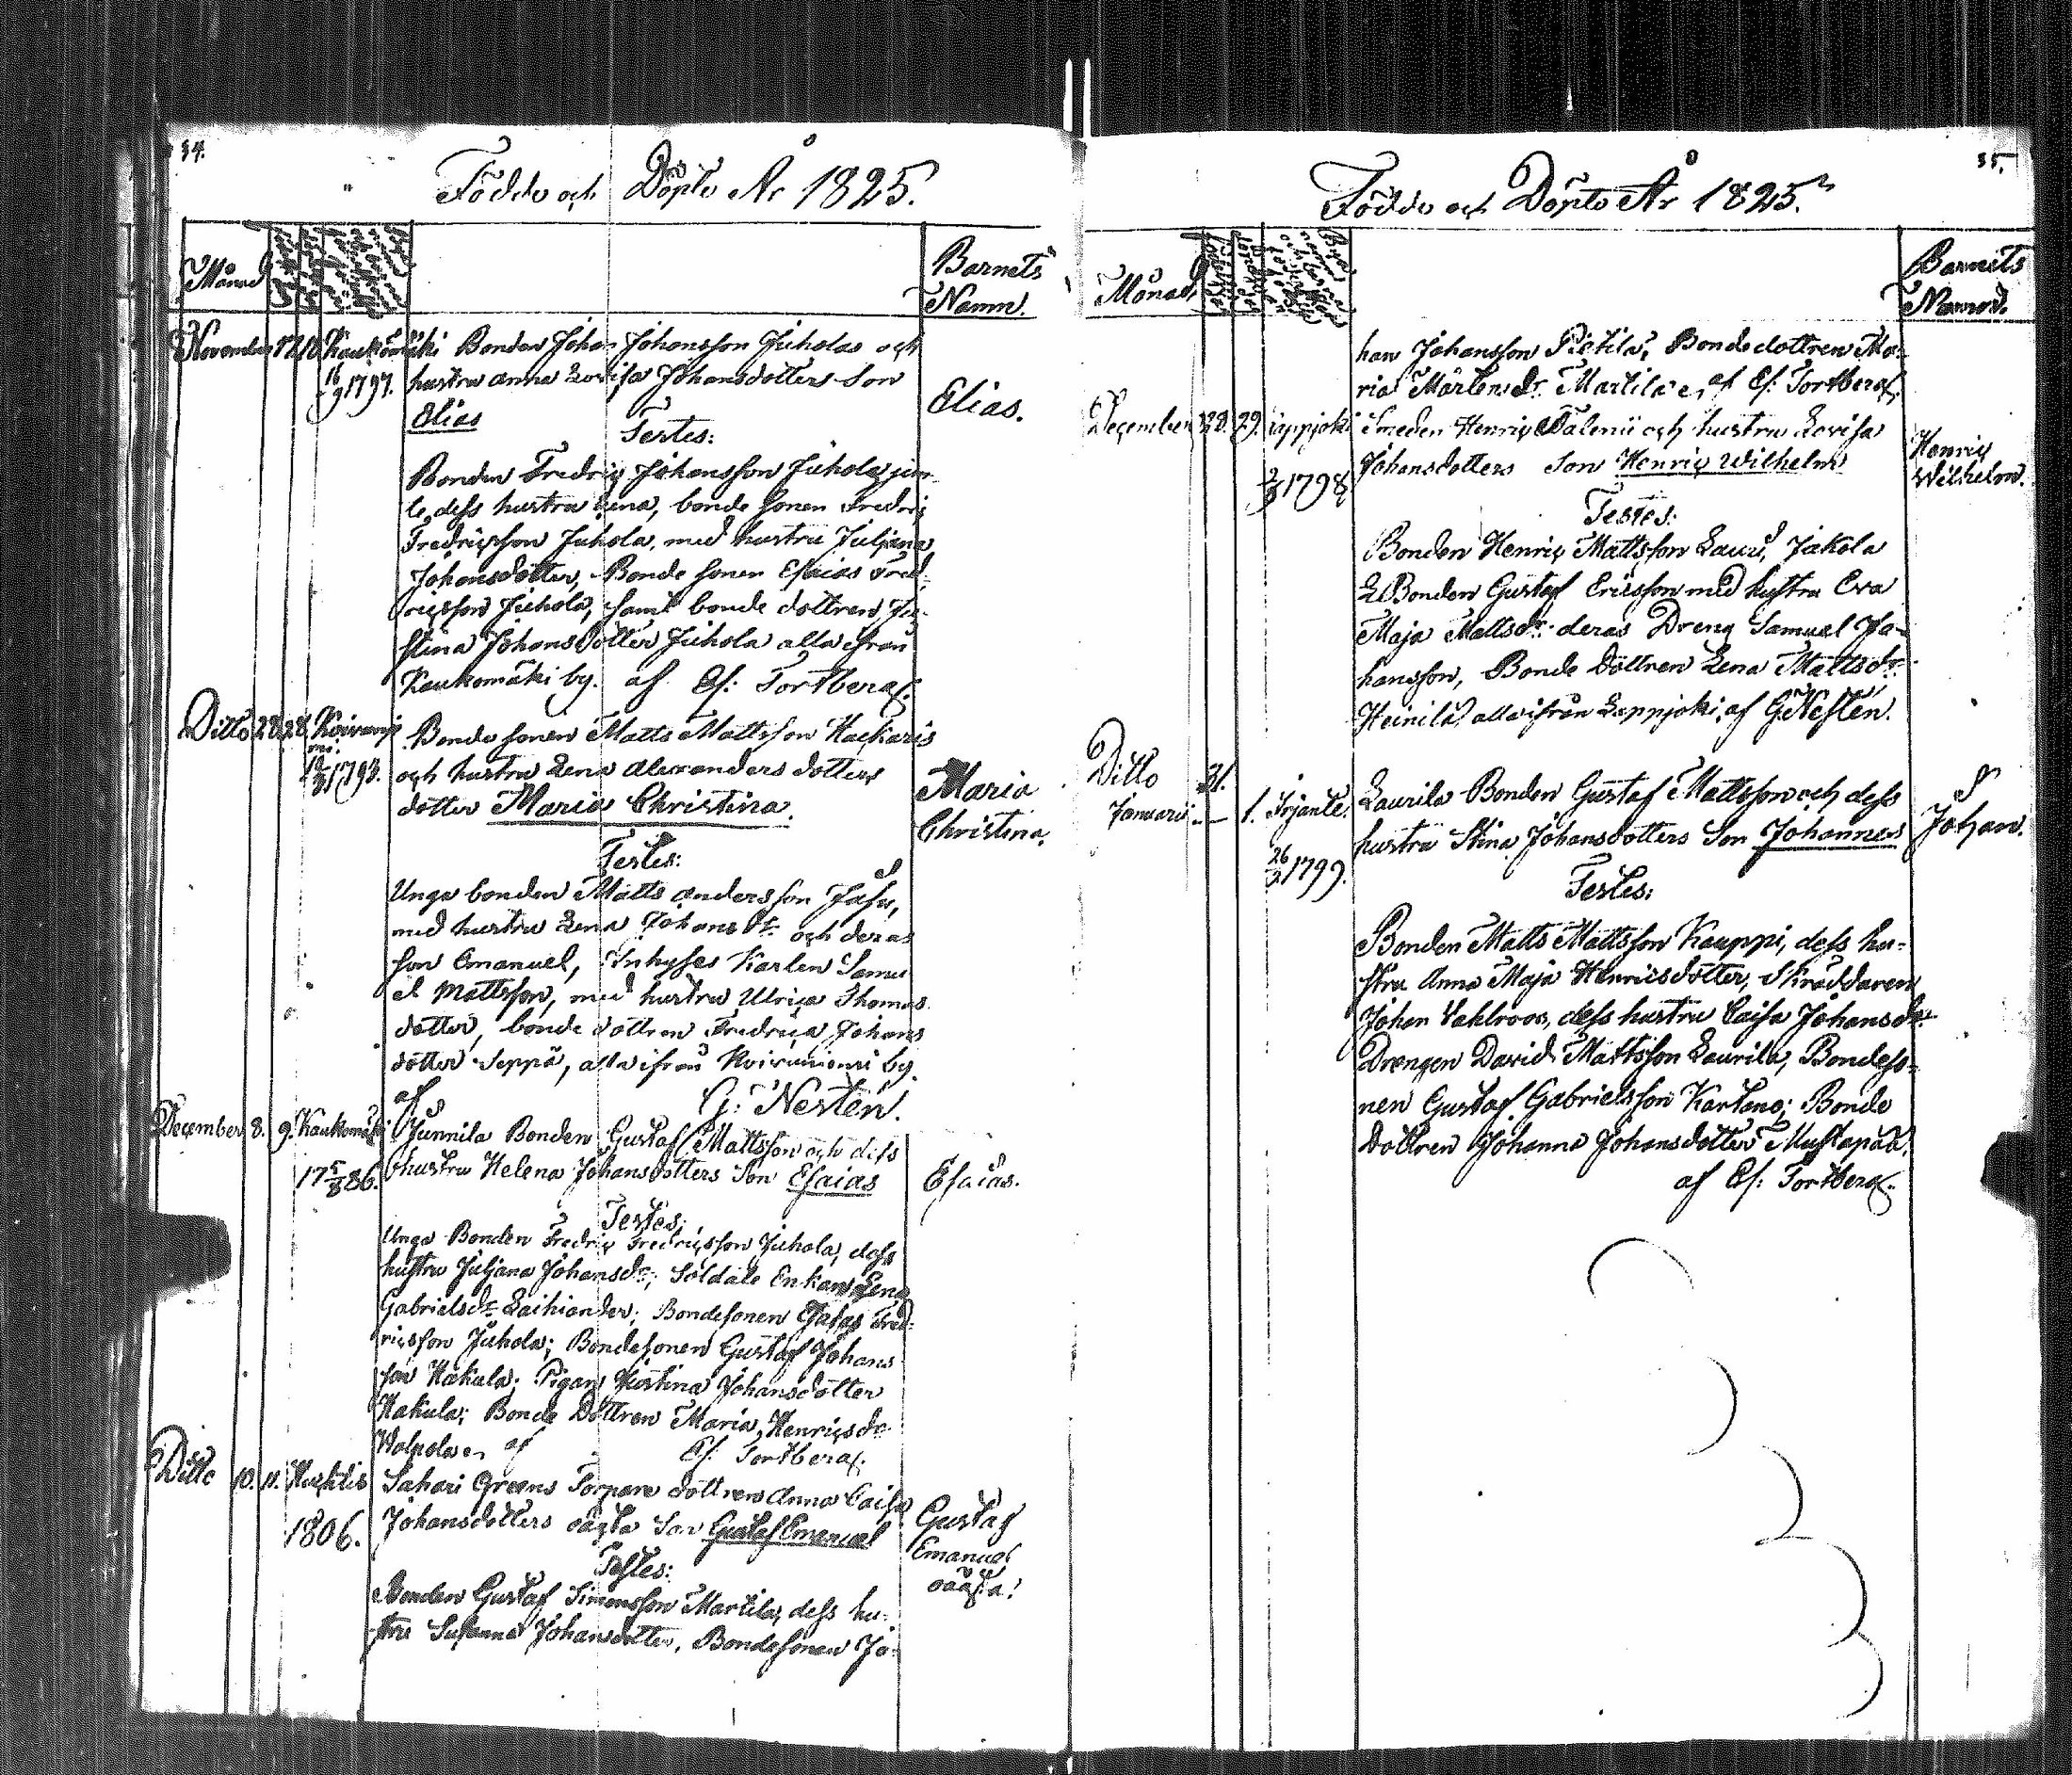 34.
Födde och Döpte År 1825.
Månad
Barnets
Namn.
November 17. 18. Kaukomäki Bonden Johan Johansson Juholas och
16/9 1797. hustru Anna Lovisa Johansdotters Son
Elias
Elias.
Testes:
Bonden Fredriç Johansson Juhola jem
te dess hustru Lena, bonde sonen Fredriç
Fredriçsson Juhola, med hustru Juljana
Johansdotter, Bonde sonen Esaias Fred-
riçsson Juhola, samt bonde dottren Ju-
stina Johansdotter Juhola alla ifrån
Kaukomäki by. af Es: Tortberg.
Ditto 28. 28. Koivunje
mi.
1793. Bonde sonen Matts Mattsson Hackaris
och hustru Lena Alexanders dotters
dotter Maria Christina.
Maria
Christina.
Testes:
Unge bonden Matts Andersson Jasu,
med hustru Lena Johans dr och deras
son Emanuel, Inhyses Karlen Samu
el Mattsson, med hustru Ulriça Thomas
dotter, bonde dottren Fredriça Johans
dotter Seppä, alla ifrån Koivuniemi by
af G: Nestén.
December 8. 9. Kaukomäki Junnila Bonden Gustaf Mattsson och dess
17 5/8 86. hustru Helena Johansdotters Son Esaias
Esaias.
Testes:
Unge Bonden Fredriç Fredriçsson Juhola, dess
hustru Juljana Johansdr; Soldate Enkan Lena
Gabrielsdr Laihiander; Bondesonen Esaias Fred-
riçsson Juhola; Bondesonen Gustaf Johans
son Hakula; Pigan Justina Johansdotter
Hakula; Bonde Dottren Maria Henriçsdr
af Es: Tortberg.
Ditto 10. 11. Huchtis Sahari Greens Torpare dottren Anna Caisa
1806. Johansdotters oägta Son Gustaf Emanuel
Gustaf
Emanuel
oägta!
Testes:
Bonden Gustaf Simonsson Martila, dess hu-
stru Susanna Johansdotter, Bondesonen Jo-
35.
Födde och Döpte År 1825.
Månad
Barnets
Namn.
han Johansson Pietilä, Bondedottren Ma-
ria Mårtensdr Martila af Es: Tortberg.
December 28. 29. Lappjoki Smeden Henriç Talenii och hustru Lovisa
1798 Johansdotters Son Henriç Wilhelm
Henriç
Wilhelm.
Testes:
Bonden Henriç Mattsson Lauri, Jakola
Bonden Gustaf Ericsson med hustru Eva
Maja Mattsdr deras Dreng Samuel Jo-
hansson, Bonde dottren Lena Mattsdr
Heinilä alla ifrån Lappjoki, af G: Nestén.
Ditto 31.
Januarii — 1. Irjante. Laurila Bonden Gustaf Mattsson och dess
1799. hustru Stina Johansdotters Son Johannes
Johan.
Testes:
Bonden Matts Mattsson Kauppi, dess hu-
stru Anna Maja Henricsdotter, Skräddaren
Johan Vahlroos, dess hustru Caisa Johansdr.
Drengen David Mattsson Laurila, Bondeso-
nen Gustaf Gabrielsson Kartano; Bonde
dottren Johanna Johansdotter Mustapää.
af Es: Tortberg.